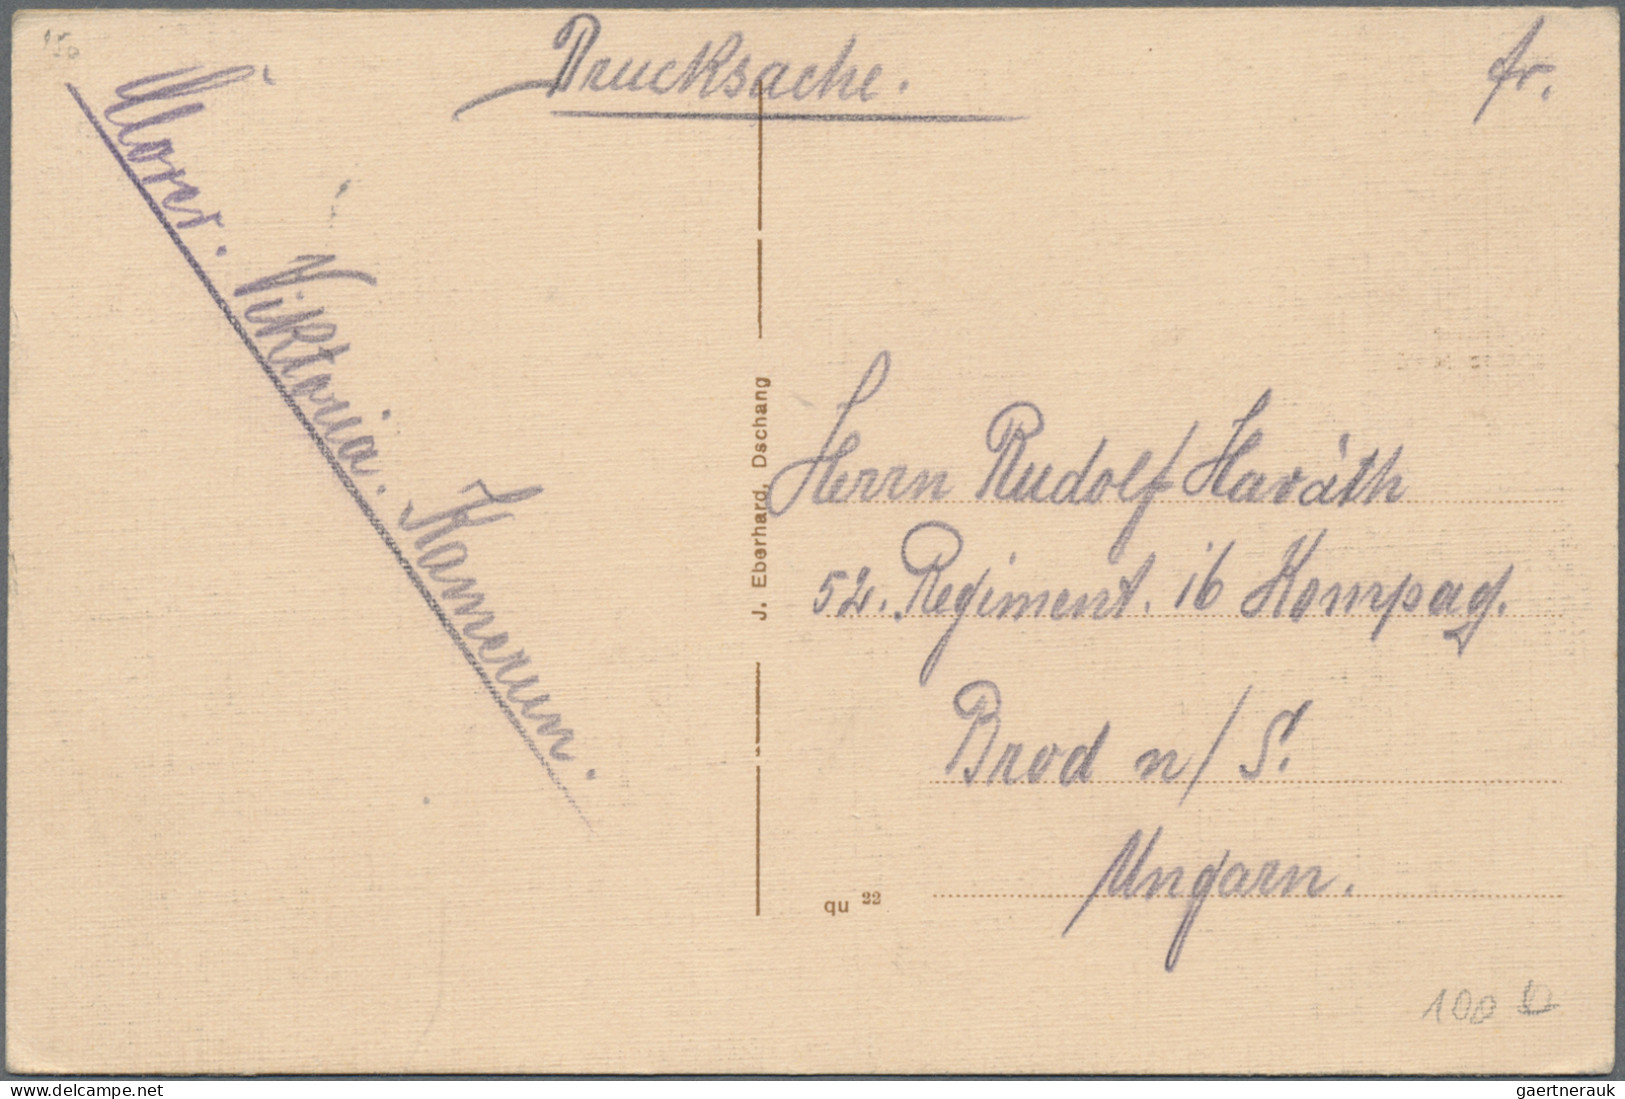 Drucksache.
fr.
Viktoria. Kamerun.
J. Eberhard, Dschang
Herrn Rudolf Haváth
52. Regiment. 16 Kompag.
Brod n/S.
Ungarn.
qu 22
100
www.delcampe.net
gaertnerauk